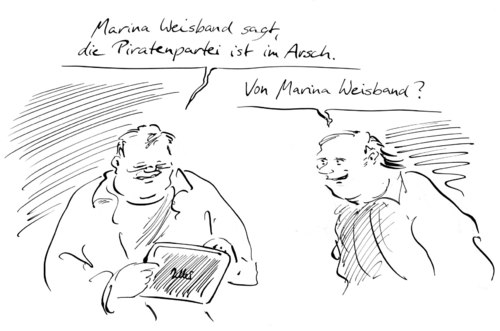 Marina Weisband sagt,
die Piratenpartei ist im Arsch.
Von Marina Weisband?